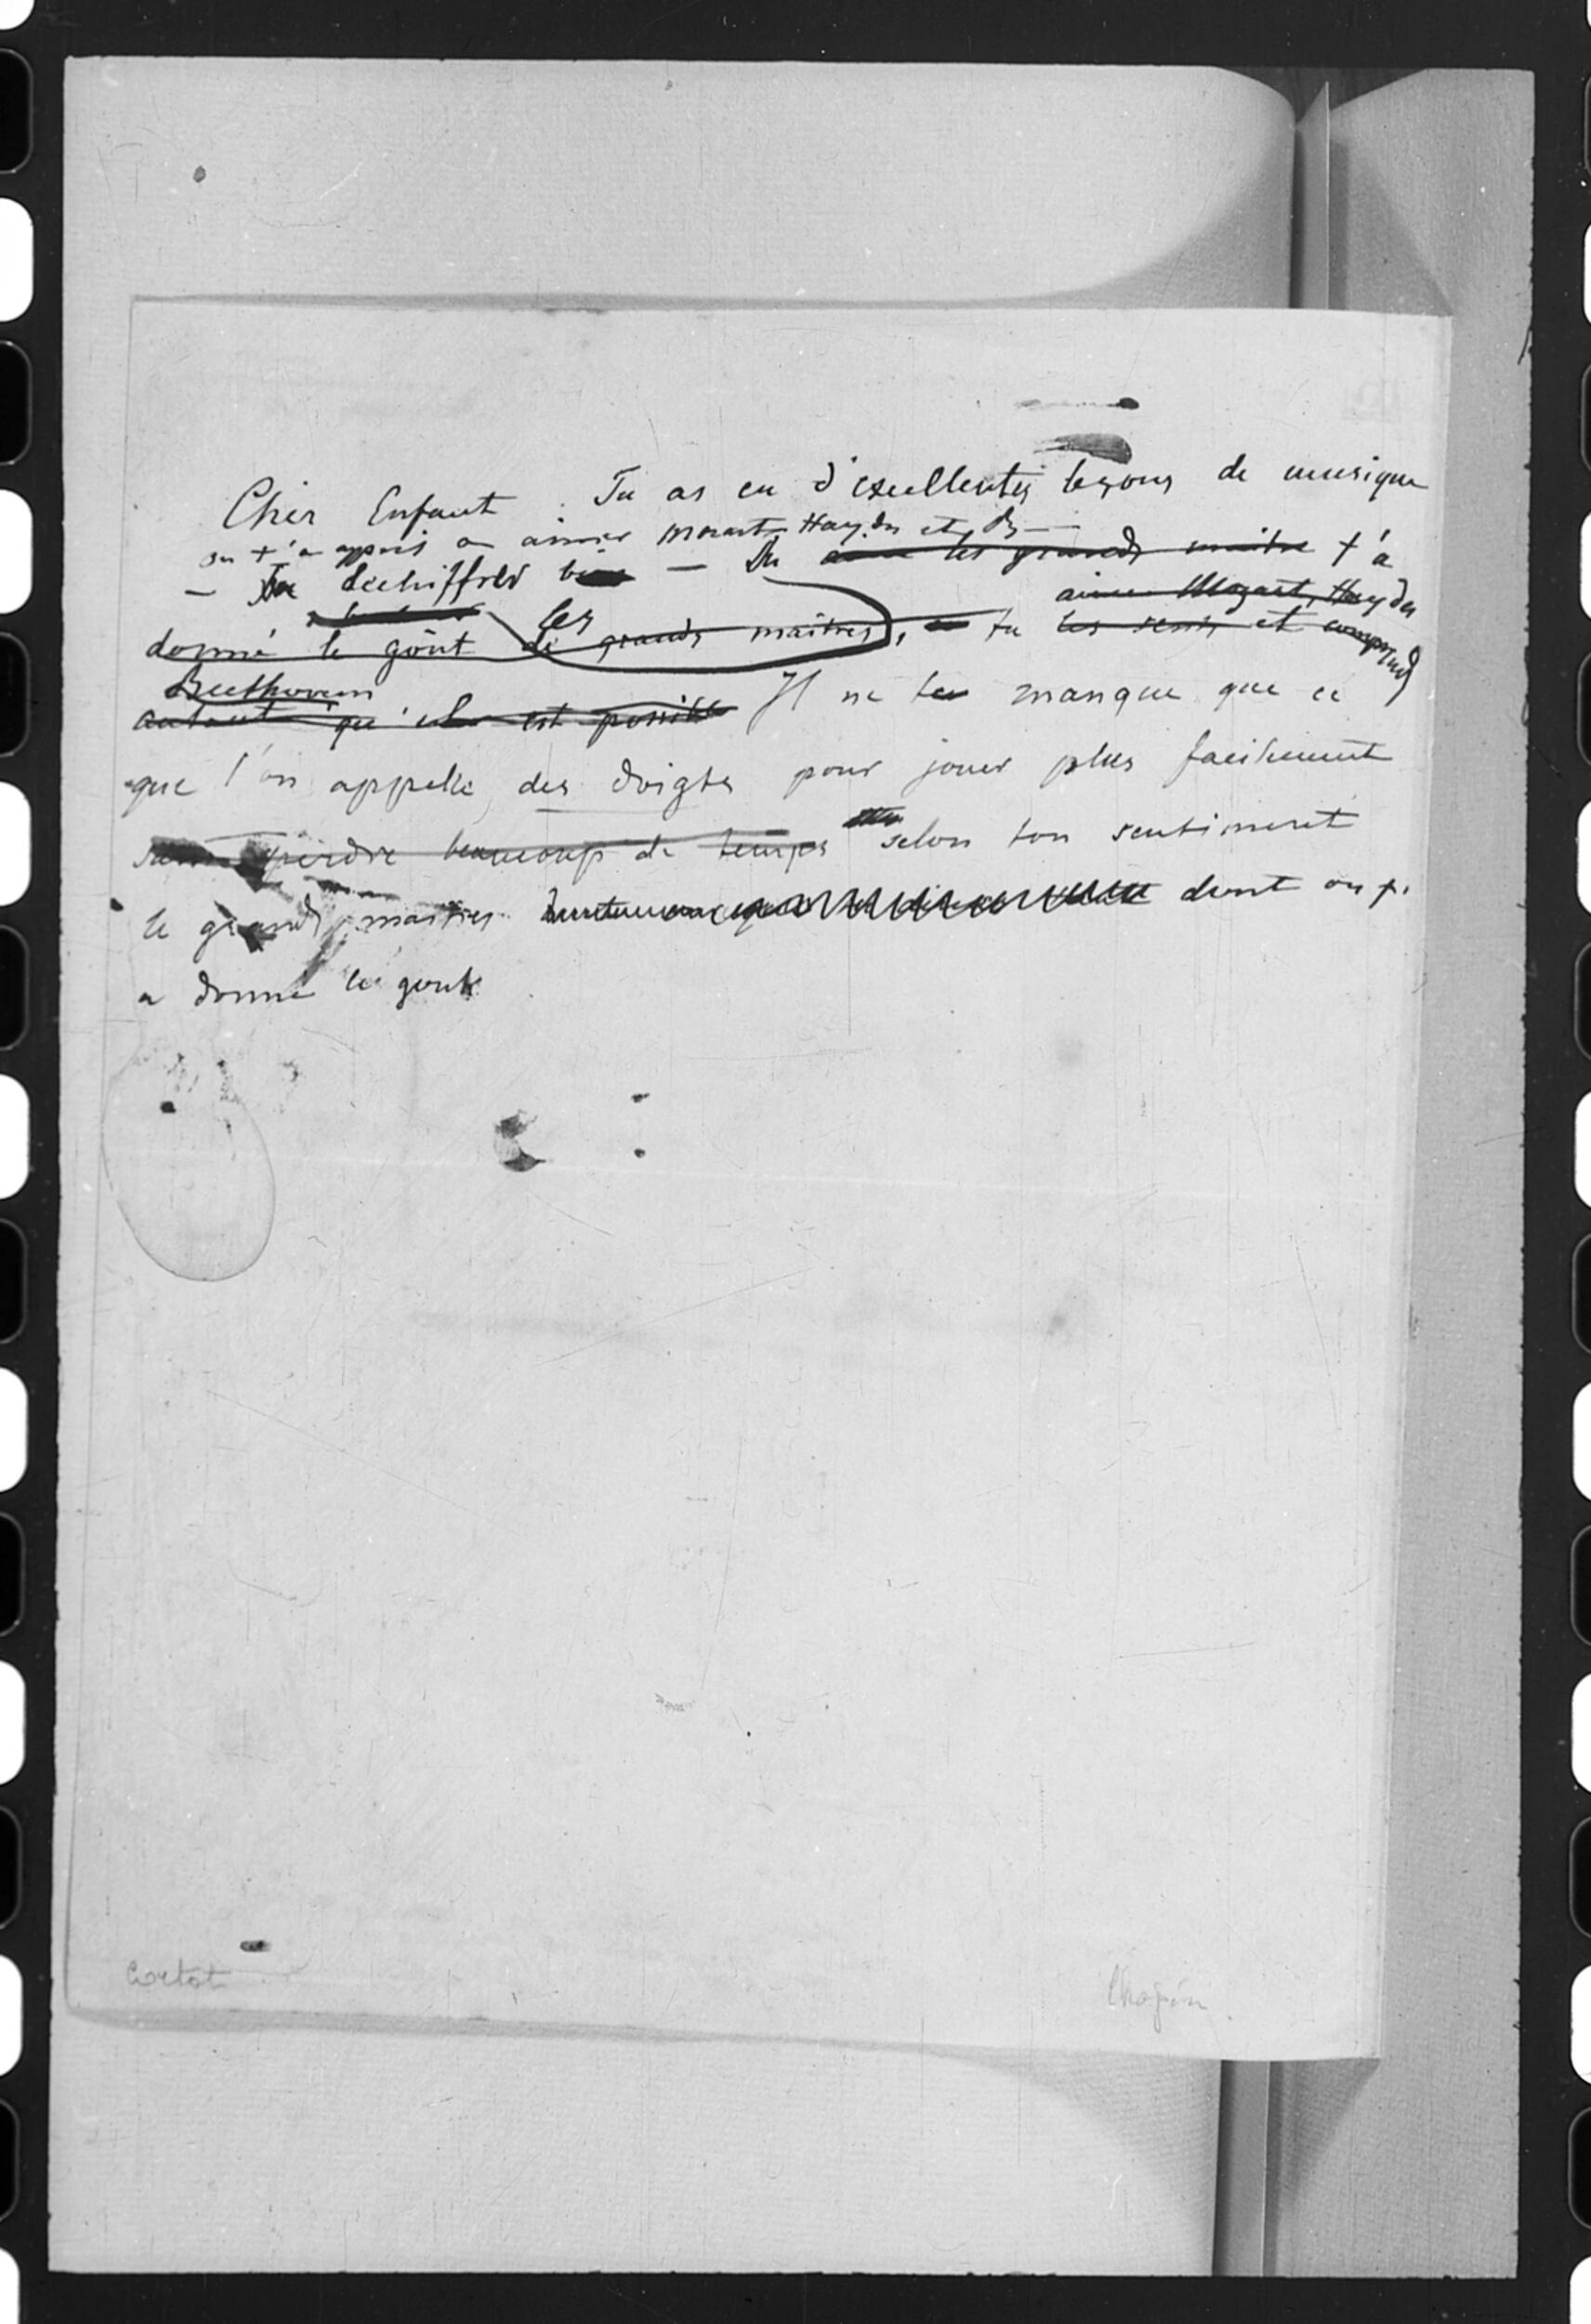 Cher Enfant. Tu as eu d'excellentes leçons de musique
on t'a appris a aimer Mozart Haydn et
– Tu déchiffres bien – On les grands maitre t'a
aimer Mozart, Haydn
les
donné le goût de grands maîtres, tu les sens et comprends
Beethoven
autant qu'il est possible Il ne te manque que ce
que l'on appelle des doigts pour jouer plus facilement
sans perdre beaucoup de temps selon ton sentiment
le grands maitres dont on t'
a donné le gout
Cortot
Chopin